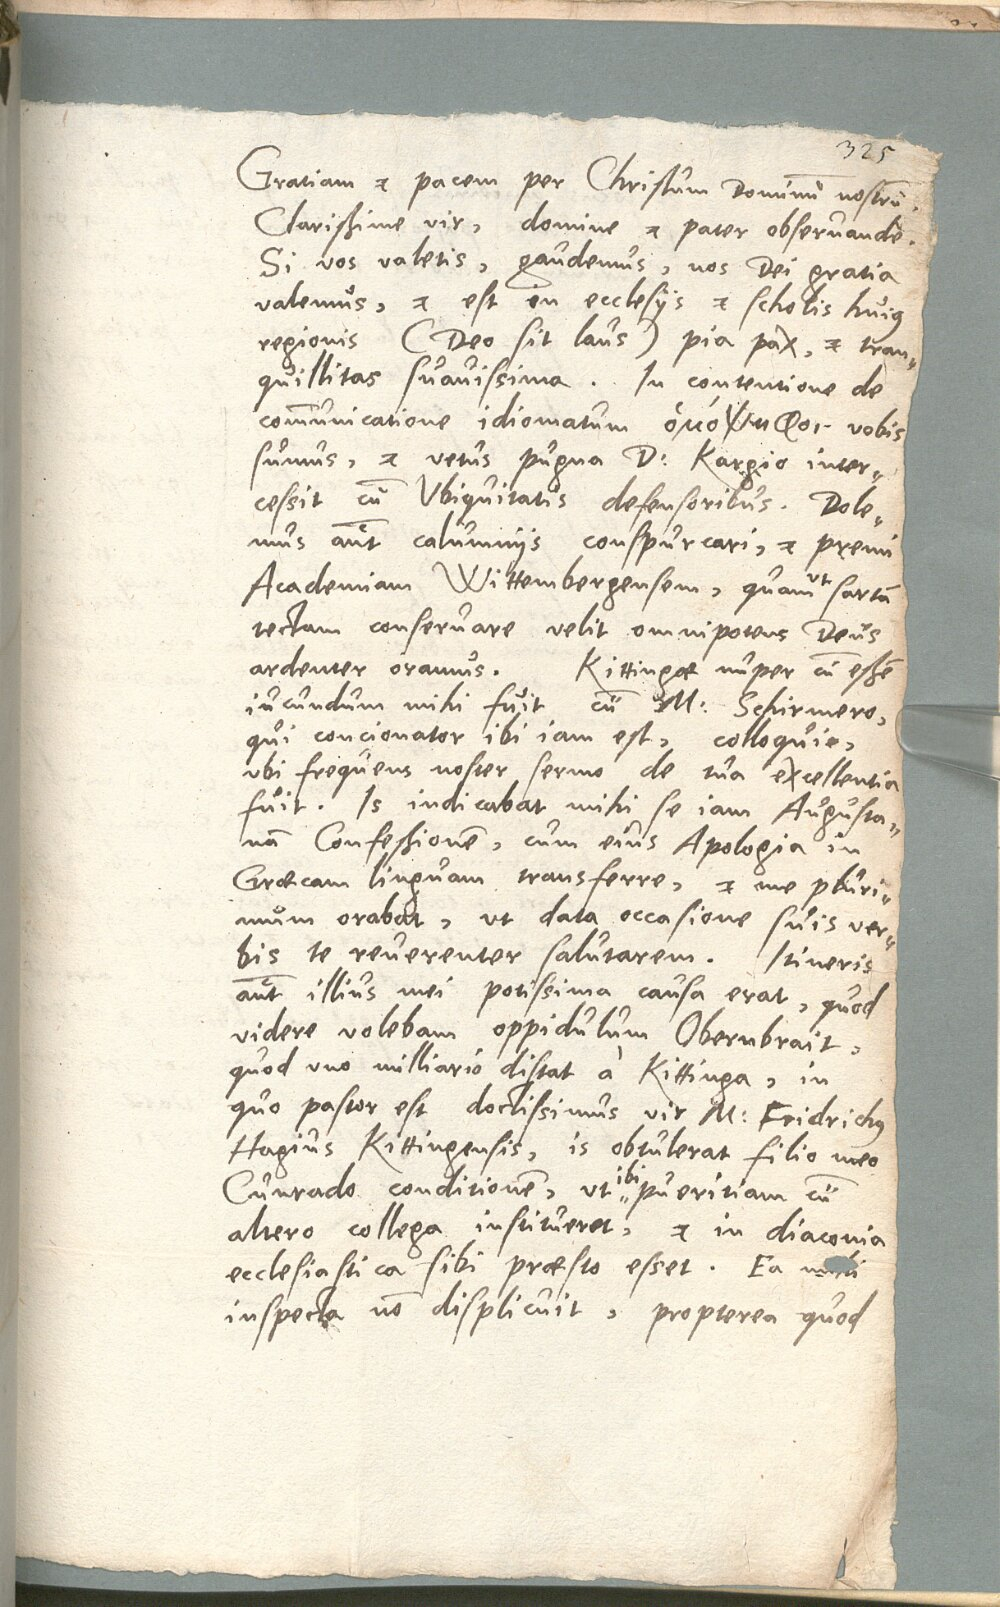 325
Gratiam & pacem per Christum Dominū nostrū.
Clarißime vir, domine & pater obseruande.
Si vos valetis, gaudemus, nos Dei gratia
valemus, & est in ecclesijs & scholis huiꝰ
regionis (Deo sit laus) pia pax, & tran„
quillitas suauissima. In contentione de
com̄unicatione idiomatum ὁμόψηφοι vobis
sumus, & vetus pugna D: Kargio inter„
cessit cū Vbiquitatis defensoribus. Dole„
mus aūt calumnijs conspurcari, & premi
Academiam Wittembergensem, quam vt sartā
tectam conseruare velit omnipotens Deus
ardenter oramus. Kittingæ nuper cū eßē
iucundum mihi fuit cū M: Schirmero,
qui concionator ibi iam est, colloquiū,
vbi frequens noster sermo de tua excellentia
fuit. Is indicabat mihi se iam Augusta„
nā Confeßionē, cum eius Apologia in
Græcam linguam transferre, & me pluri„
mum orabat, vt data occasione suis ver„
bis te reuerenter salutarem. Itineris
aūt illius mei potissima causa erat, quod
videre volebam oppidulum Obernbrait,
quod vno milliario distat à Kittinga, in
quo pastor est doctissimus vir M: Fridrichꝰ
Hagius Kittingensis, is obtulerat filio meo
Cunrado conditionē, vt ibi pueritiam cū
altero collega institueret, & in diaconia
ecclesiastica sibi præsto esset. Ea mihi
inspecta nō displicuit, propterea quod